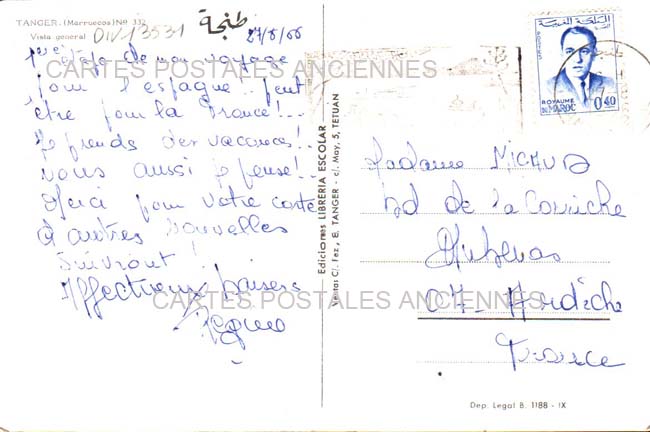 TANGER. (Marruecos) Nº 332
Vista general
DIV13531
طنجة
27/8/66
1ère étape de mon voyage
pour l'espagne peut
être pour la France!...
Je prends des vacances!..
vous aussi je pense!..
Merci pour votre carte
D'autres nouvelles
suivront!
Affectueux baisers
CARTES POSTALES ANCIENNES
CARTES POSTALES ANCIENNES
Ediciones LIBRERIA ESCOLAR
Ventas C/. Fez, 8, TANGER - c/. May, 5, TETUAN
المملكة المغربية
POSTES
ROYAUME
DU MAROC
0,40
Madame MICHUD
Bd de la Corniche
Aubenas
07 - Ardèche
France
Dep. Legal B. 1188 - IX